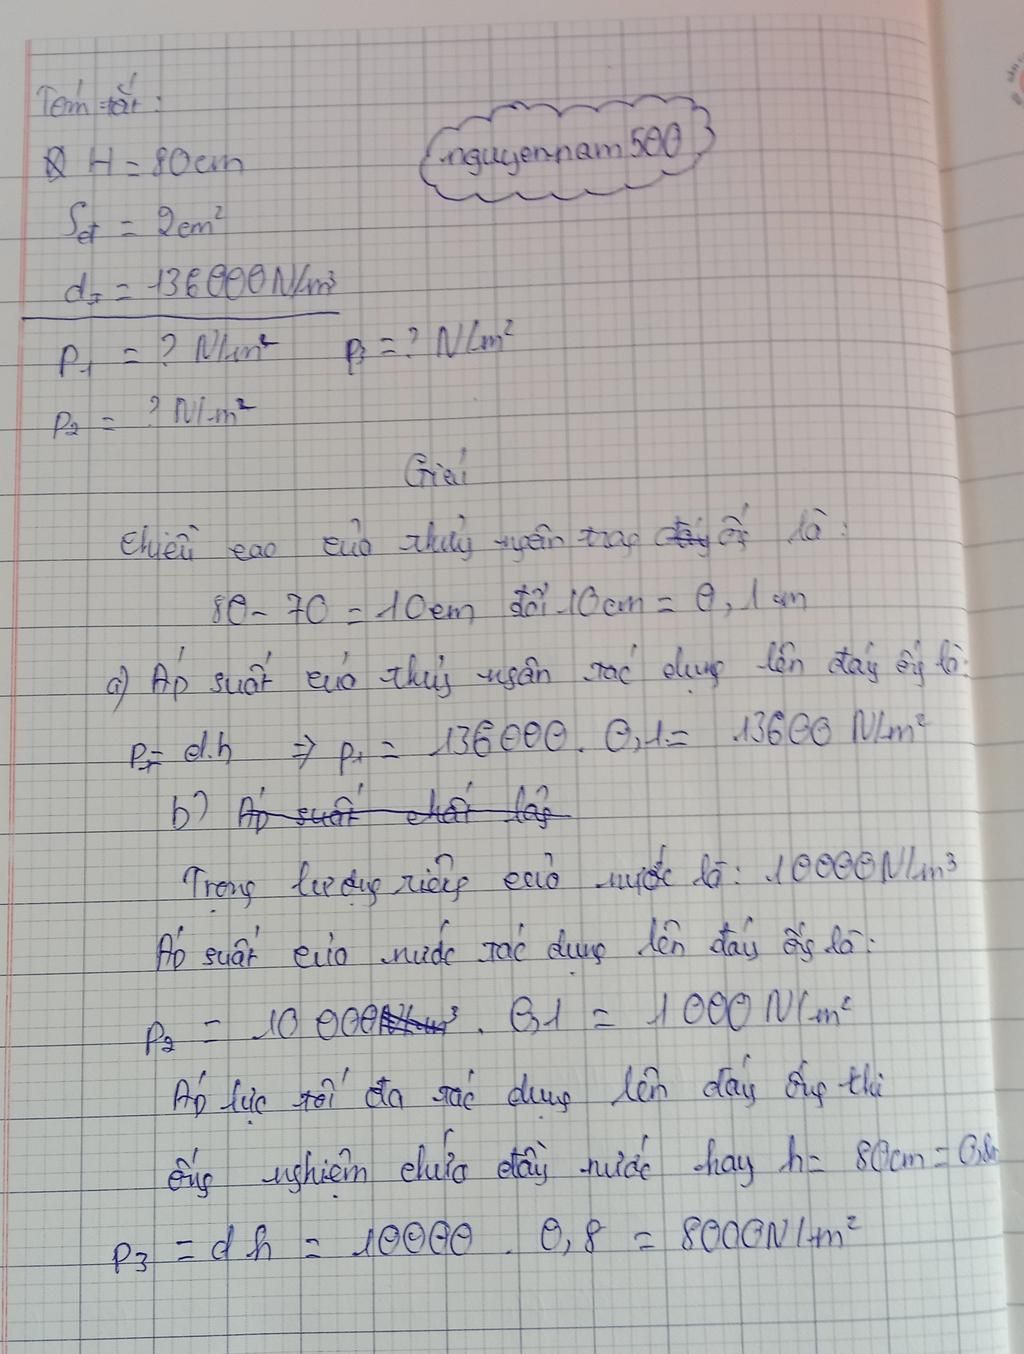 Tóm tắt:
nguyennam500
H = 80cm
Sđ = 2cm²
d₁ = 136000N/m³
P₁ = ? N/m² P₃ = ? N/m²
P₂ = ? N/m²
Giải
Chiều cao của thuỷ ngân trog ốg là:
80 - 70 = 10cm đổi 10cm = 0,1m
a) Áp suất của thuỷ ngân tác dụng lên đáy ốg là:
P= d.h => P₁ = 136000. 0,1= 13600 N/m²
b) Áp suất chất lỏg
Trọng lượng riêng của nước là: 10000N/m³
Áp suất của nước tác dụng lên đáy ốg là:
P₂ = 10 000N/m³. 0,1 = 1000N/m²
Áp lực tối đa tác dụng lên đáy ống thì
ống nghiệm chứa đầy nước hay h= 80cm = 0,8m
P₃ = d h = 10000 . 0,8 = 8000N/m²